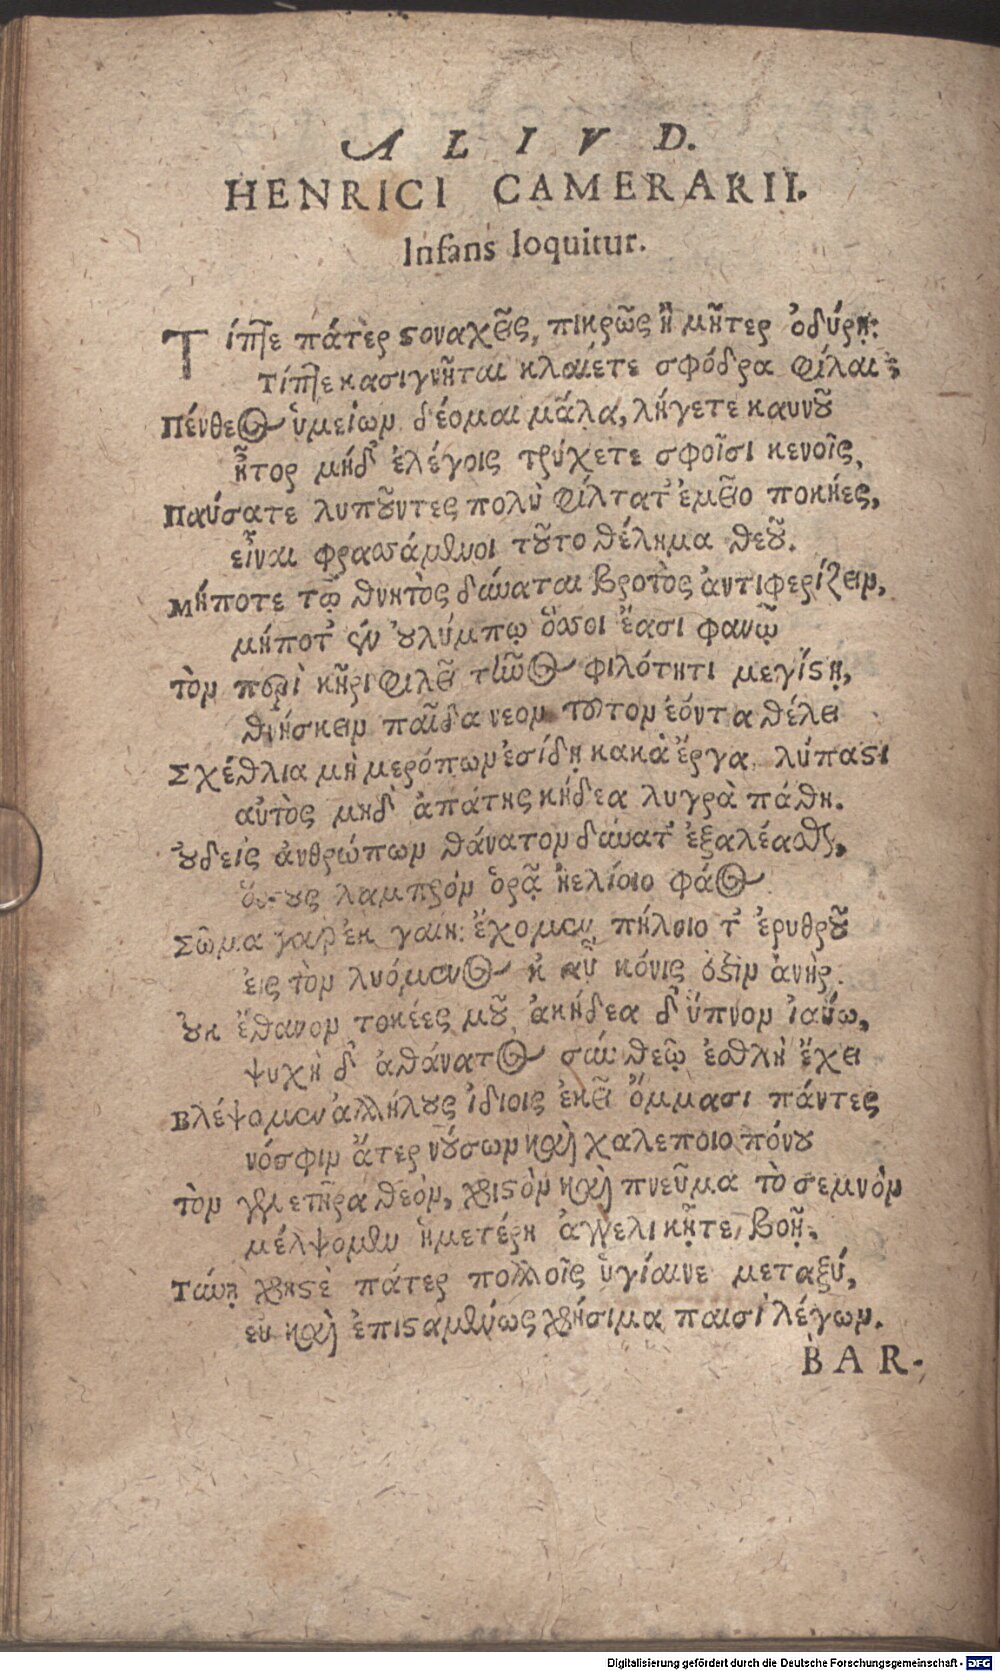 ALIVD.
HENRICI CAMERARII.
Infans loquitur.
Τίπτε πάτερ στοναχεῖς, πικρῶς ἢ μῆτερ ὀδύρῃ:
Τίπτε κασιγνῆται κλαίετε σφόδρα φίλαι;
Πένθεος ὑμείων δέομαι μάλα, λήγετε καινοῦ
ἦτορ μήδ' ἐλέγοις τρύχετε σφοῖσι κενοῖς,
Παύσατε λυποῦντες πολὺ φίλτατ' ἐμεῖο τοκῆες,
εἶναι φρασσάμενοι τοῦτο θέλημα θεοῦ.
Μήποτε τῷ θνητὸς δύναται βροτὸς ἀντιφερίζειν,
μήποτ' ἐν οὐλύμπῳ ὅσσοι ἔασι φανῷ
τὸν περὶ κῆρι φιλεῖ τηνῶος φιλότητι μεγίστῃ,
θνήσκειν παῖδα νεον τοῦτον ἐόντα θέλει
Σχέθλια μὴ μερόπων ἐσίδῃ κακὰ ἔργα λύπαςι
αὐτὸς μηδ' ἀπάτης κήδεα λυγρὰ πάθη.
οὐδεὶς ἀνθρώπων θάνατον δύνατ' ἐξαλέασθαι,
λαμπρὸν ὁρᾷ ἠελίοιο φάος
Σῶμα γαρ ἐκ γαίης ἔχομεν, πήλοιο τ' ἐρυθροῦ
εἰς τὸν λυόμενος κ αὖ κόνις ἀνὴρ.
οὐκ ἔθανον τοκέες μοῦ, ἀκήδεα δ' ὕπνον ἰαύω,
ψυχὴ δ' ἀθάνατος σὺν θεῷ ἐσθλὴ ἔχει
Βλέψομεν ἀλλήλους ἰδίοις ἐκεῖ ὄμμασι πάντες
νόσφιν ἄτερ νούσων καὶ χαλεποιο πόνου
τὸν γενετῆρα θεόν, χριστὸν καὶ πνεῦμα τὸ σεμνὸν
μέλψομεν ἡμετέρη ἀγγελικῆτε, βοῇ.
χρηστὲ πάτερ πολλοῖς ὑγίαινε μεταξύ,
εὐ καὶ ἐπισταμένως χρήσιμα παισὶ λέγων.
BAR-
Digitalisierung gefördert durch die Deutsche Forschungsgemeinschaft - DFG